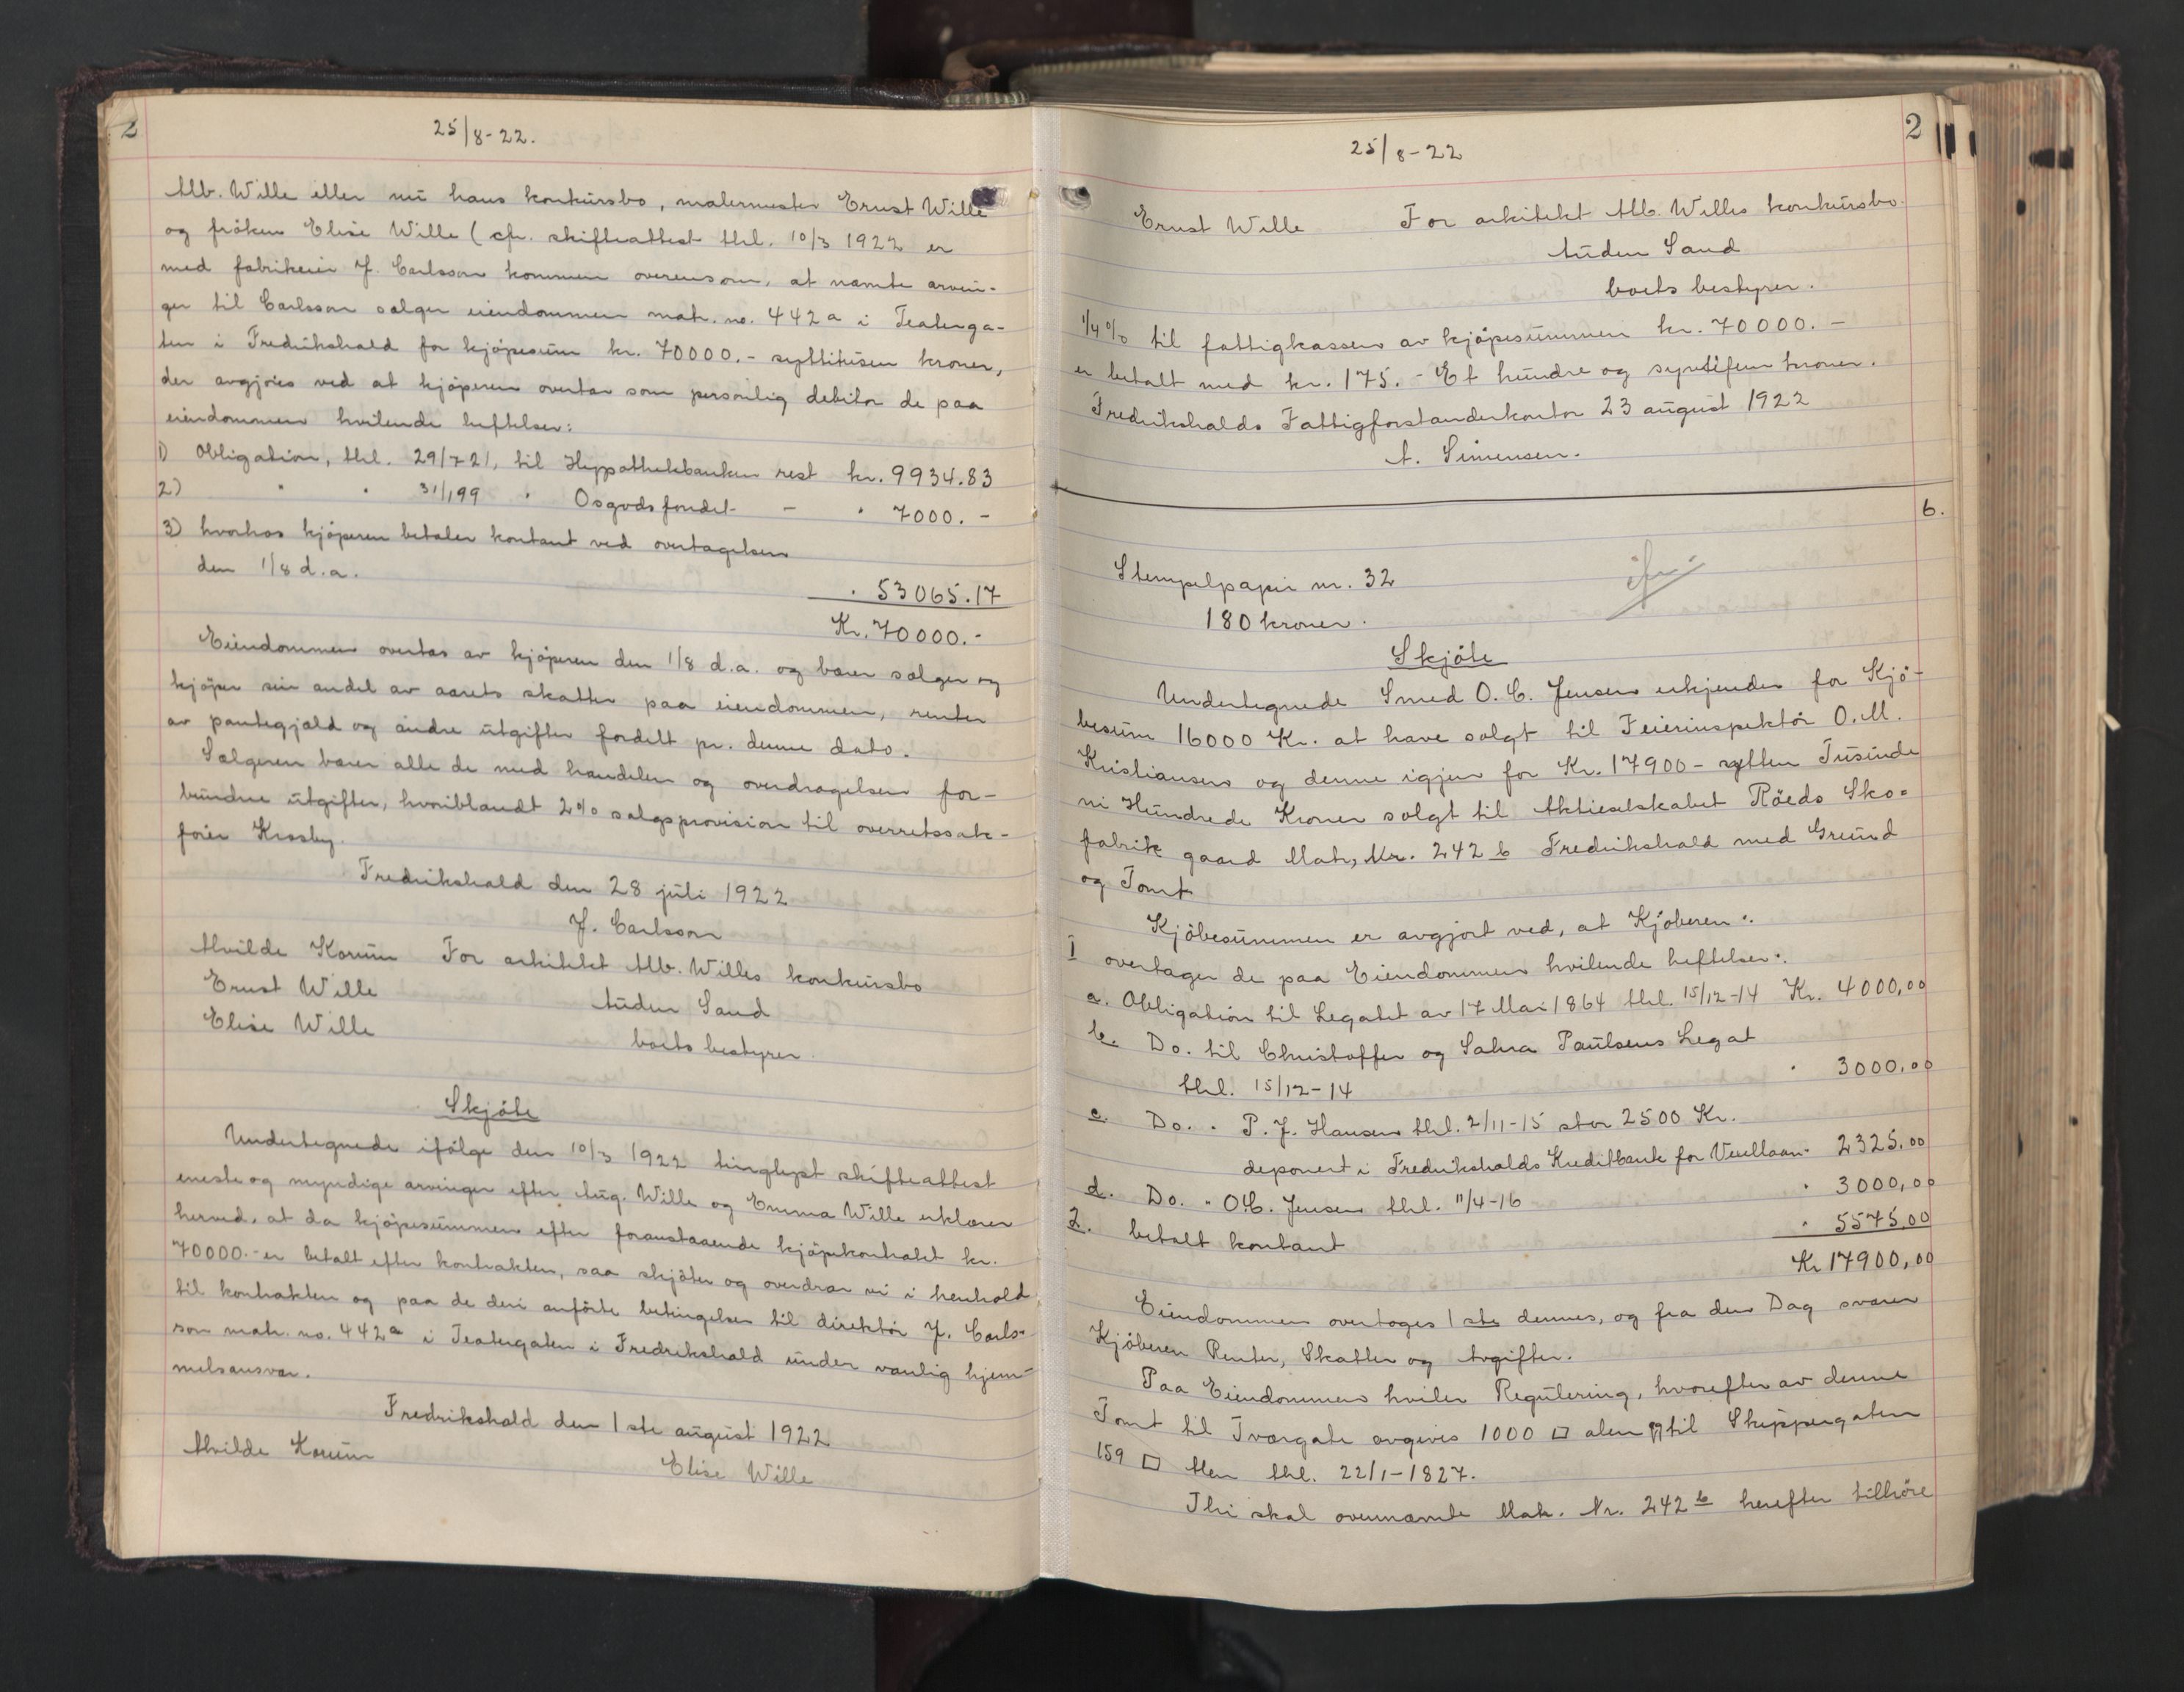 2
25/8-22.
Alb. Wille eller nu hans konkursbo, malermester Ernst Wille
og fröken Elise Wille (cfr. skifteattest thl. 10/3 1922 er
med fabrikeier J. Carlsson kommen overens om, at nævnte arvin-
ger til Carlsson sælger eiendommen matr. no. 442a i Teaterga-
ten i Fredrikshald for kjöpesum kr. 70000.- syttitusen kroner,
der avgjöres ved at kjöperen overtar som personlig debitor de paa
eiendommen hvilende heftelser:
1) Obligation, thl. 29/7 21, til Hypothekbanken rest kr. 9934.83
2) " " 31/1 99 " Osgodsfondet - " 7000.-
3) hvorhos kjöperen betaler kontant ved overtagelsen
den 1/8 d.a.
" 53065.17
Kr. 70000.-
Eiendommen overtas av kjöperen den 1/8 d.a. og bærer sælger og
kjöper sin andel av aarets skatter paa eiendommen, renter
av pantegjæld og andre utgifter fordelt pr. denne dato.
Sælgeren bærer alle de med handelen og overdragelsen for-
bundne utgifter, hvoriblandt 2% salgsprovision til overretssak-
förer Krosby.
Fredrikshald den 28 juli 1922
J. Carlsson
Alvilde Korum For arkitekt Alb. Willes konkursbo
Ernst Wille Auden Sand
Elise Wille boets bestyrer.
Skjöte
Undertegnede ifölge den 10/3 1922 tinglyst skifteattest
eneste og myndige arvinger efter Aug. Wille og Emma Wille erklærer
herved, at da kjöpesummen efter foranstaaende kjöpekontrakt kr.
70000.- er betalt efter kontrakten, saa skjöter og overdrar vi i henhold
til kontrakten og paa de deri anförte betingelser til direktör J. Carls-
son matr. no. 442a i Teatergaten i Fredrikshald under vanlig hjem-
melsansvar.
Fredrikshald den 1ste august 1922
Alvilde Korum Elise Wille
2
25/8-22
Ernst Wille For arkitekt Alb. Willes konkursbo.
Auden Sand
boets bestyrer.
1/4% til fattigkassen av kjöpesummen kr. 70000.-
er betalt med kr. 175.- Et hundre og syvtifem kroner.
Fredrikshalds Fattigforstanderkontor 23 august 1922
A. Simensen.
6.
Stempelpapir nr. 32
180 kroner.
Skjöte
Undertegnede Smed O. C. Jensen erkjender for Kjö-
besum 16000 Kr. at have solgt til Feierinspektör O. M.
Kristiansen og denne igjen for Kr. 17900 - sytten Tusinde
ni Hundrede Kroner solgt til Aktieselskabet Röeds Sko-
fabrik gaard Matr. Nr. 242 b Fredrikshald med Grund
og Tomt
Kjöbesummen er avgjort ved, at Kjöberen:
I overtager de paa Eiendommen hvilende heftelser:
a. Obligation til Legatet av 17 Mai 1864 thl. 15/12-14 Kr. 4000,00
b. Do. til Christoffer og Sahra Paulsens Legat
thl. 15/12-14 " 3000,00
c. Do. " P. J. Hansen thl. 2/11-15 stor 2500 Kr.
deponert i Fredrikshalds Kreditbank for Vexellaan " 2325,00
d. Do. " O.C. Jensen thl. 11/4-16 " 3000,00
2. betalt kontant " 5575,00
Kr 17900,00
Eiendommen overtages 1ste dennes, og fra den Dag svarer
Kjöberen Renter, Skatter og Avgifter.
Paa Eiendommen hviler Regulering, hvorefter av denne
Tomt til Tværgate avgives 1000 □ alen og til Skippergaten
159 □ Alen thl. 22/1-1827.
Thi skal ovennævnte Matr. Nr. 242 b herefter tilhöre